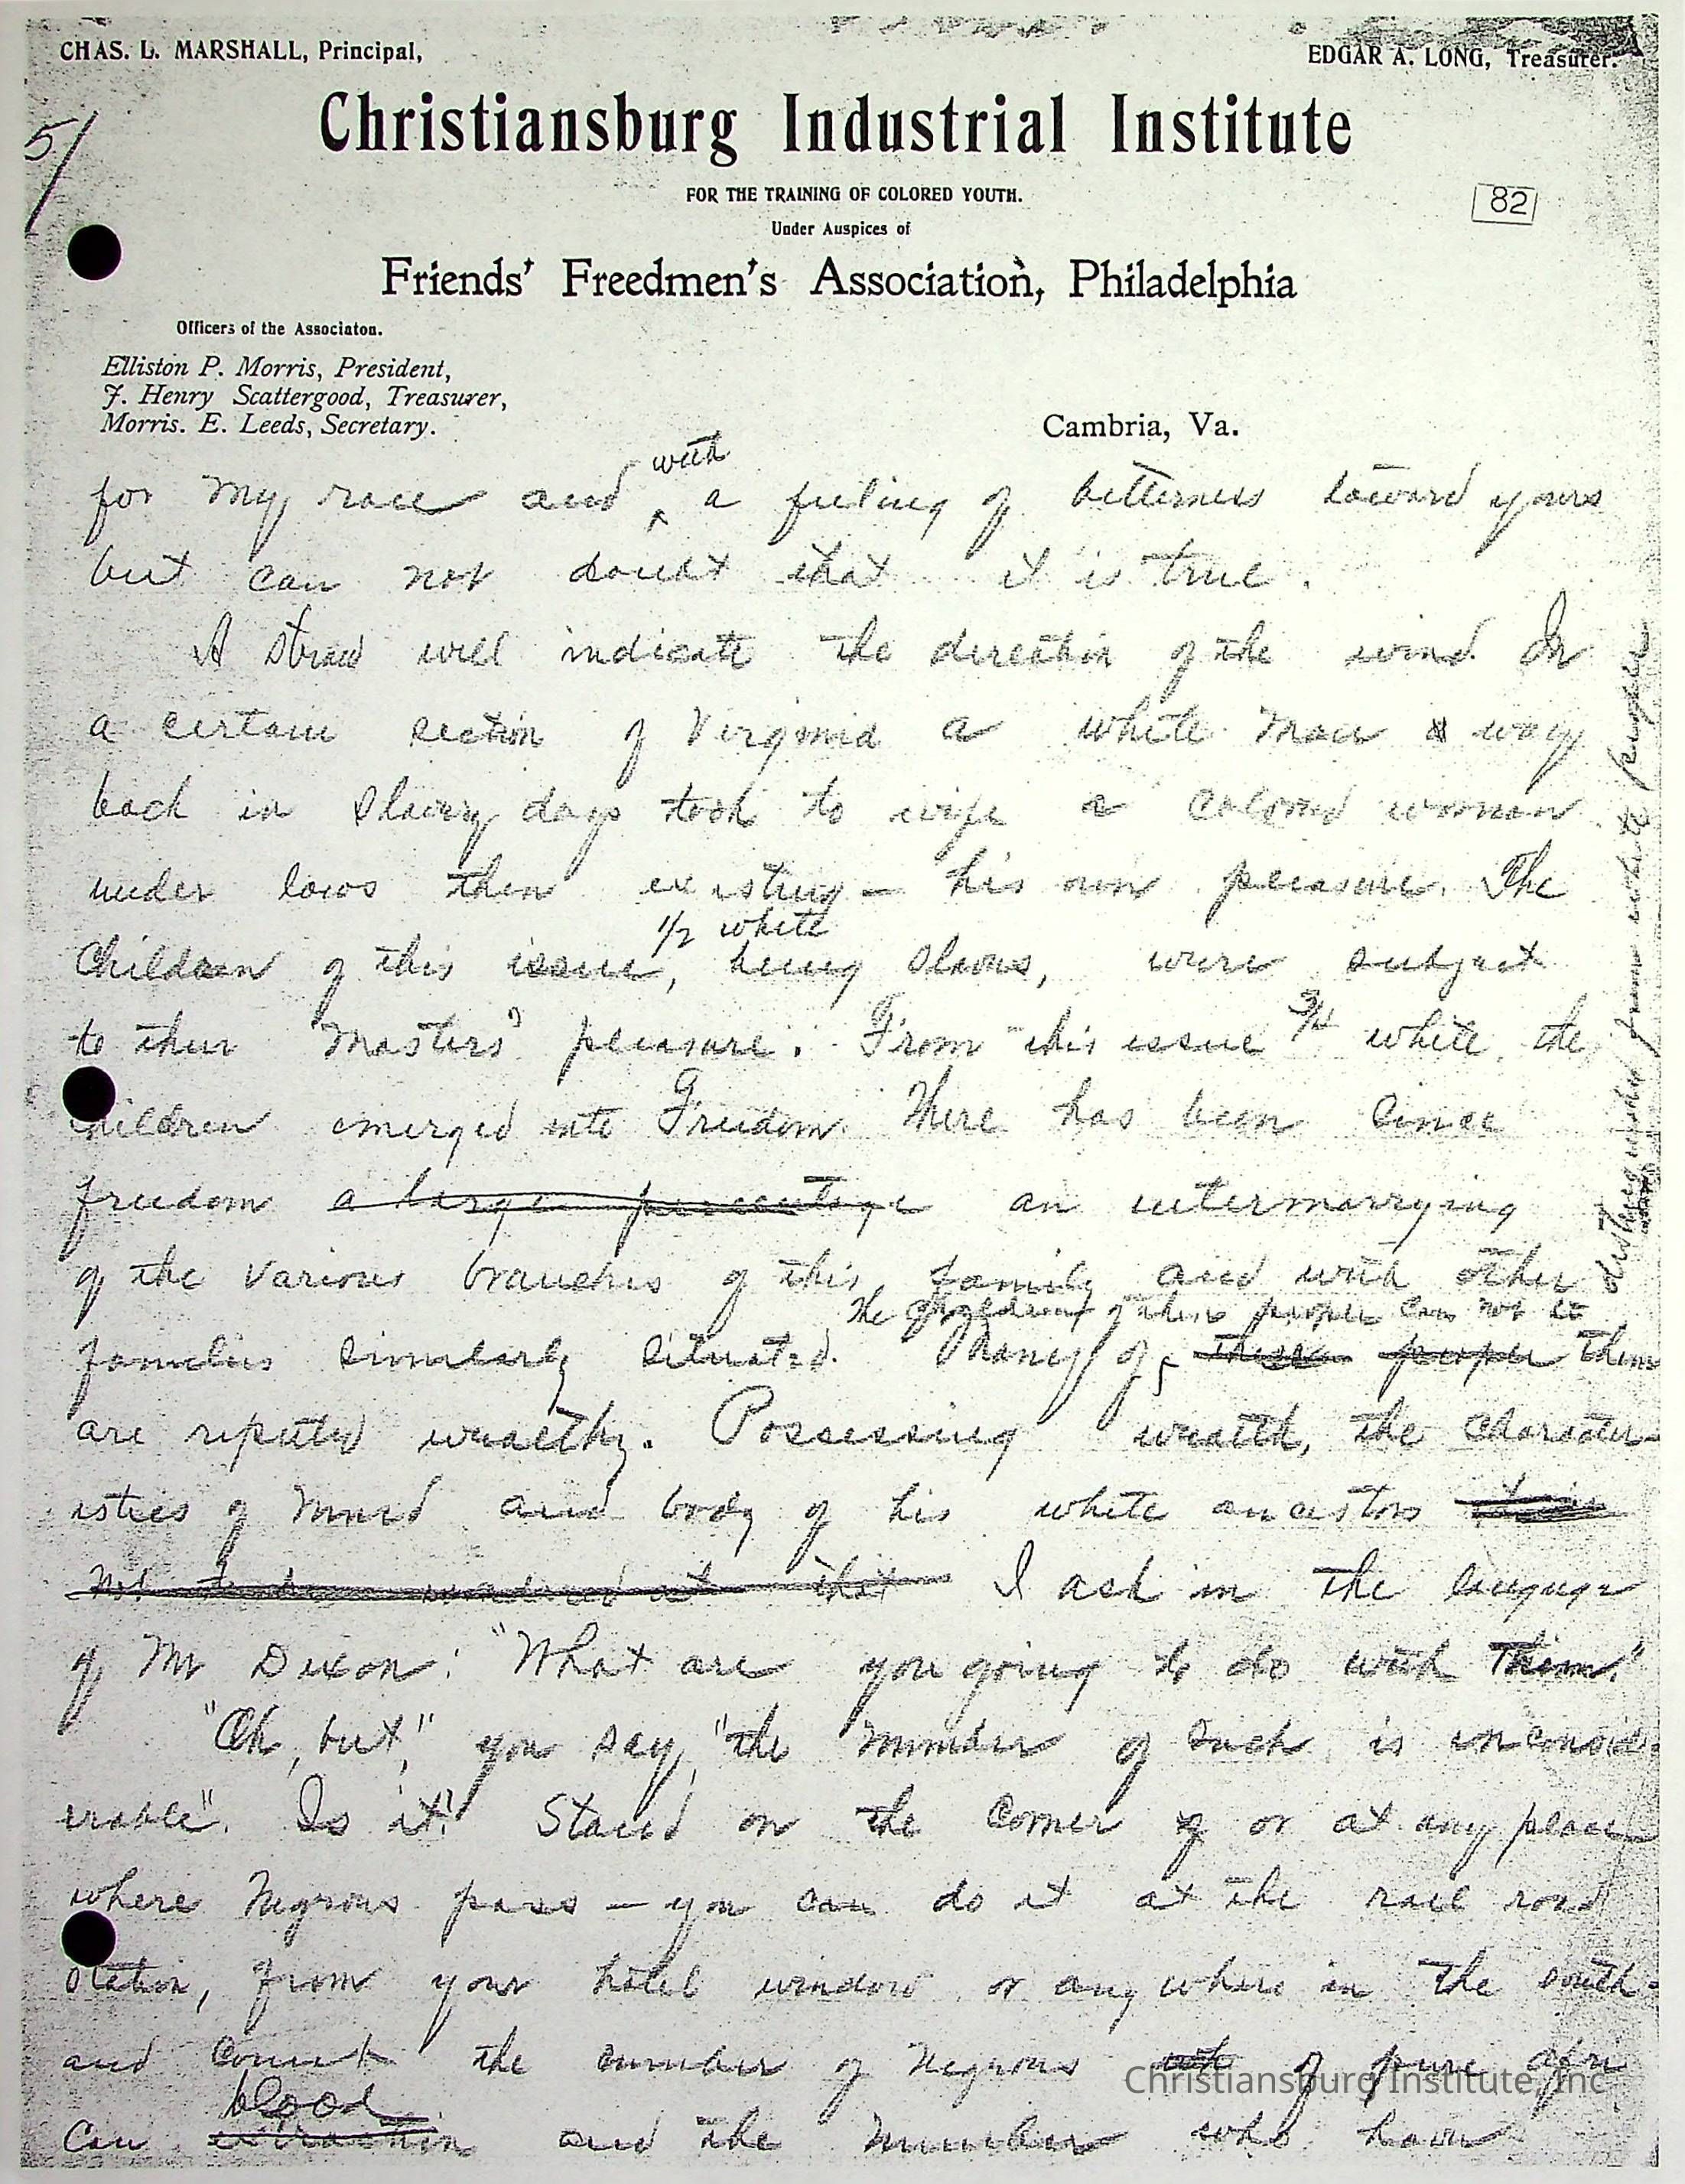 CHAS. L. MARSHALL, Principal,
EDGAR A. LONG, Treasurer.
5/
Christiansburg Industrial Institute
FOR THE TRAINING OF COLORED YOUTH.
82
Under Auspices of
Friends' Freedmen's Association, Philadelphia
Officers of the Associaton.
Elliston P. Morris, President,
J. Henry Scattergood, Treasurer,
Morris. E. Leeds, Secretary.
Cambria, Va.
with
for my race and ^ a feeling of bitterness toward yours
but can not doubt that it is true.
A straw will indicate the direction of the wind. In
a certain section of Virginia a white man way
back in slavery days took to wife a colored woman
under laws then existing – his own pleasure. The
1/2 white
Children of this issue, being slaves, were subject
to their masters' pleasure. From this issue 3/4 white, the
children emerged into Freedom. There has been since
freedom a large percentage an intermarrying
of the various branches of this family and with other
The of these people can not be
distinguished from white people
families similarly situated. Many of these people them
are reputed wealthy. Possessing wealth, the character-
istics of mind and body of his white ancestors
not to be wondered at that I ask in the language
of Mr Dixon: "What are you going to do with Them."
"Oh, but," you say, "the number of such is inconsid-
erable". Is it? Stand on the corner of or at any place
where Negroes pass – you can do it at the rail road
station, from your hotel window or any where in the south-
and count the number of Negroes of pure afri
blood
can extraction and the number who have
Christiansburg Institute, Inc